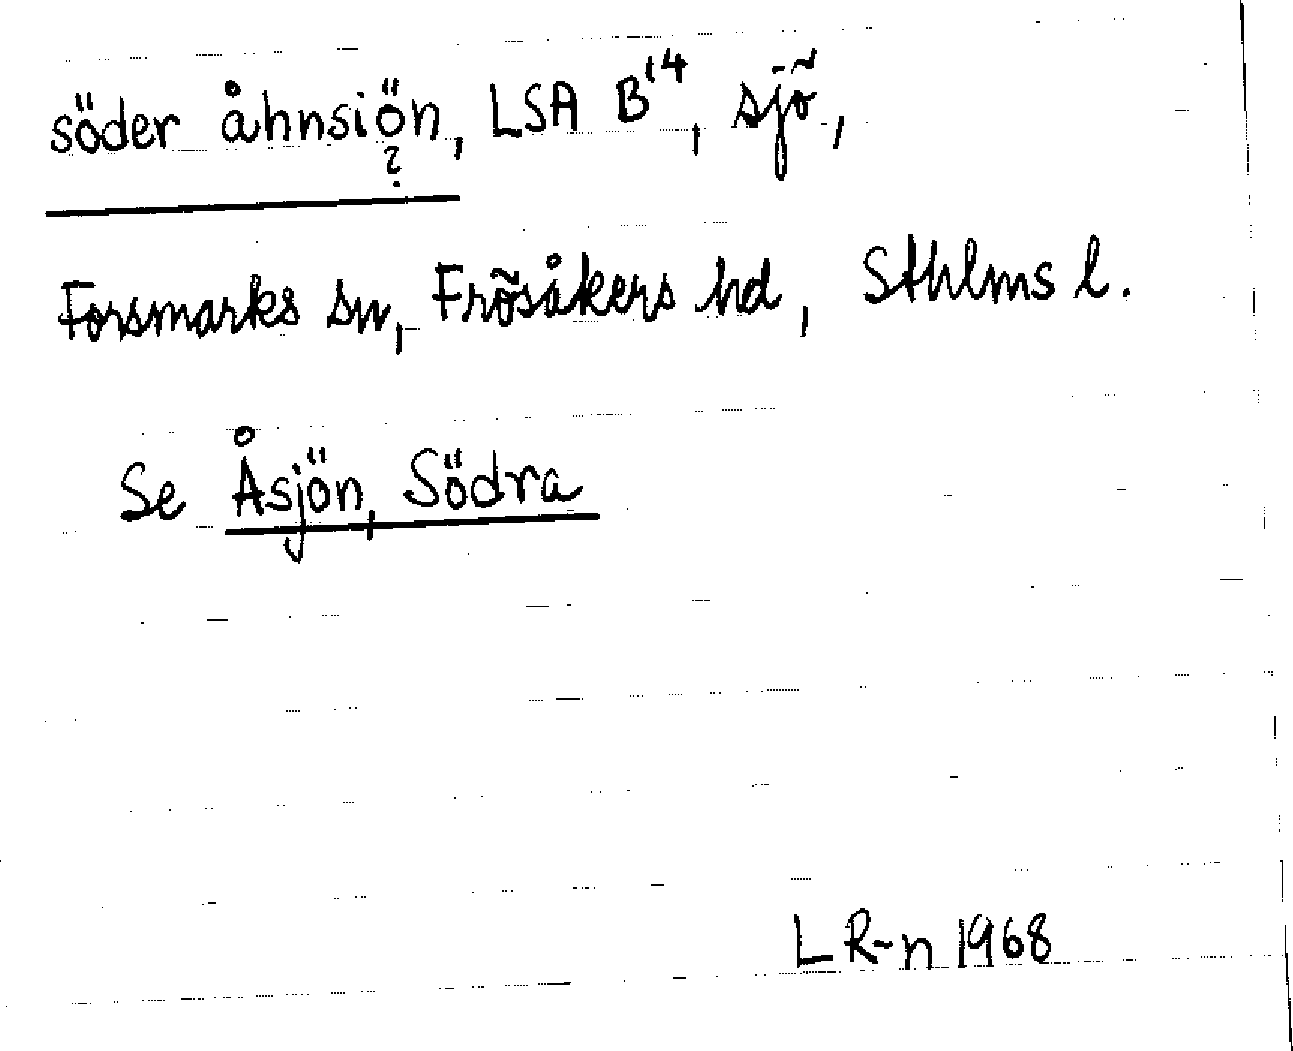 söder åhnsiön, LSA B¹4, sjö,
?
Forsmarks sn, Frösåkers hd, Sthlms l.
Se Åsjön, Södra
L R-n 1968